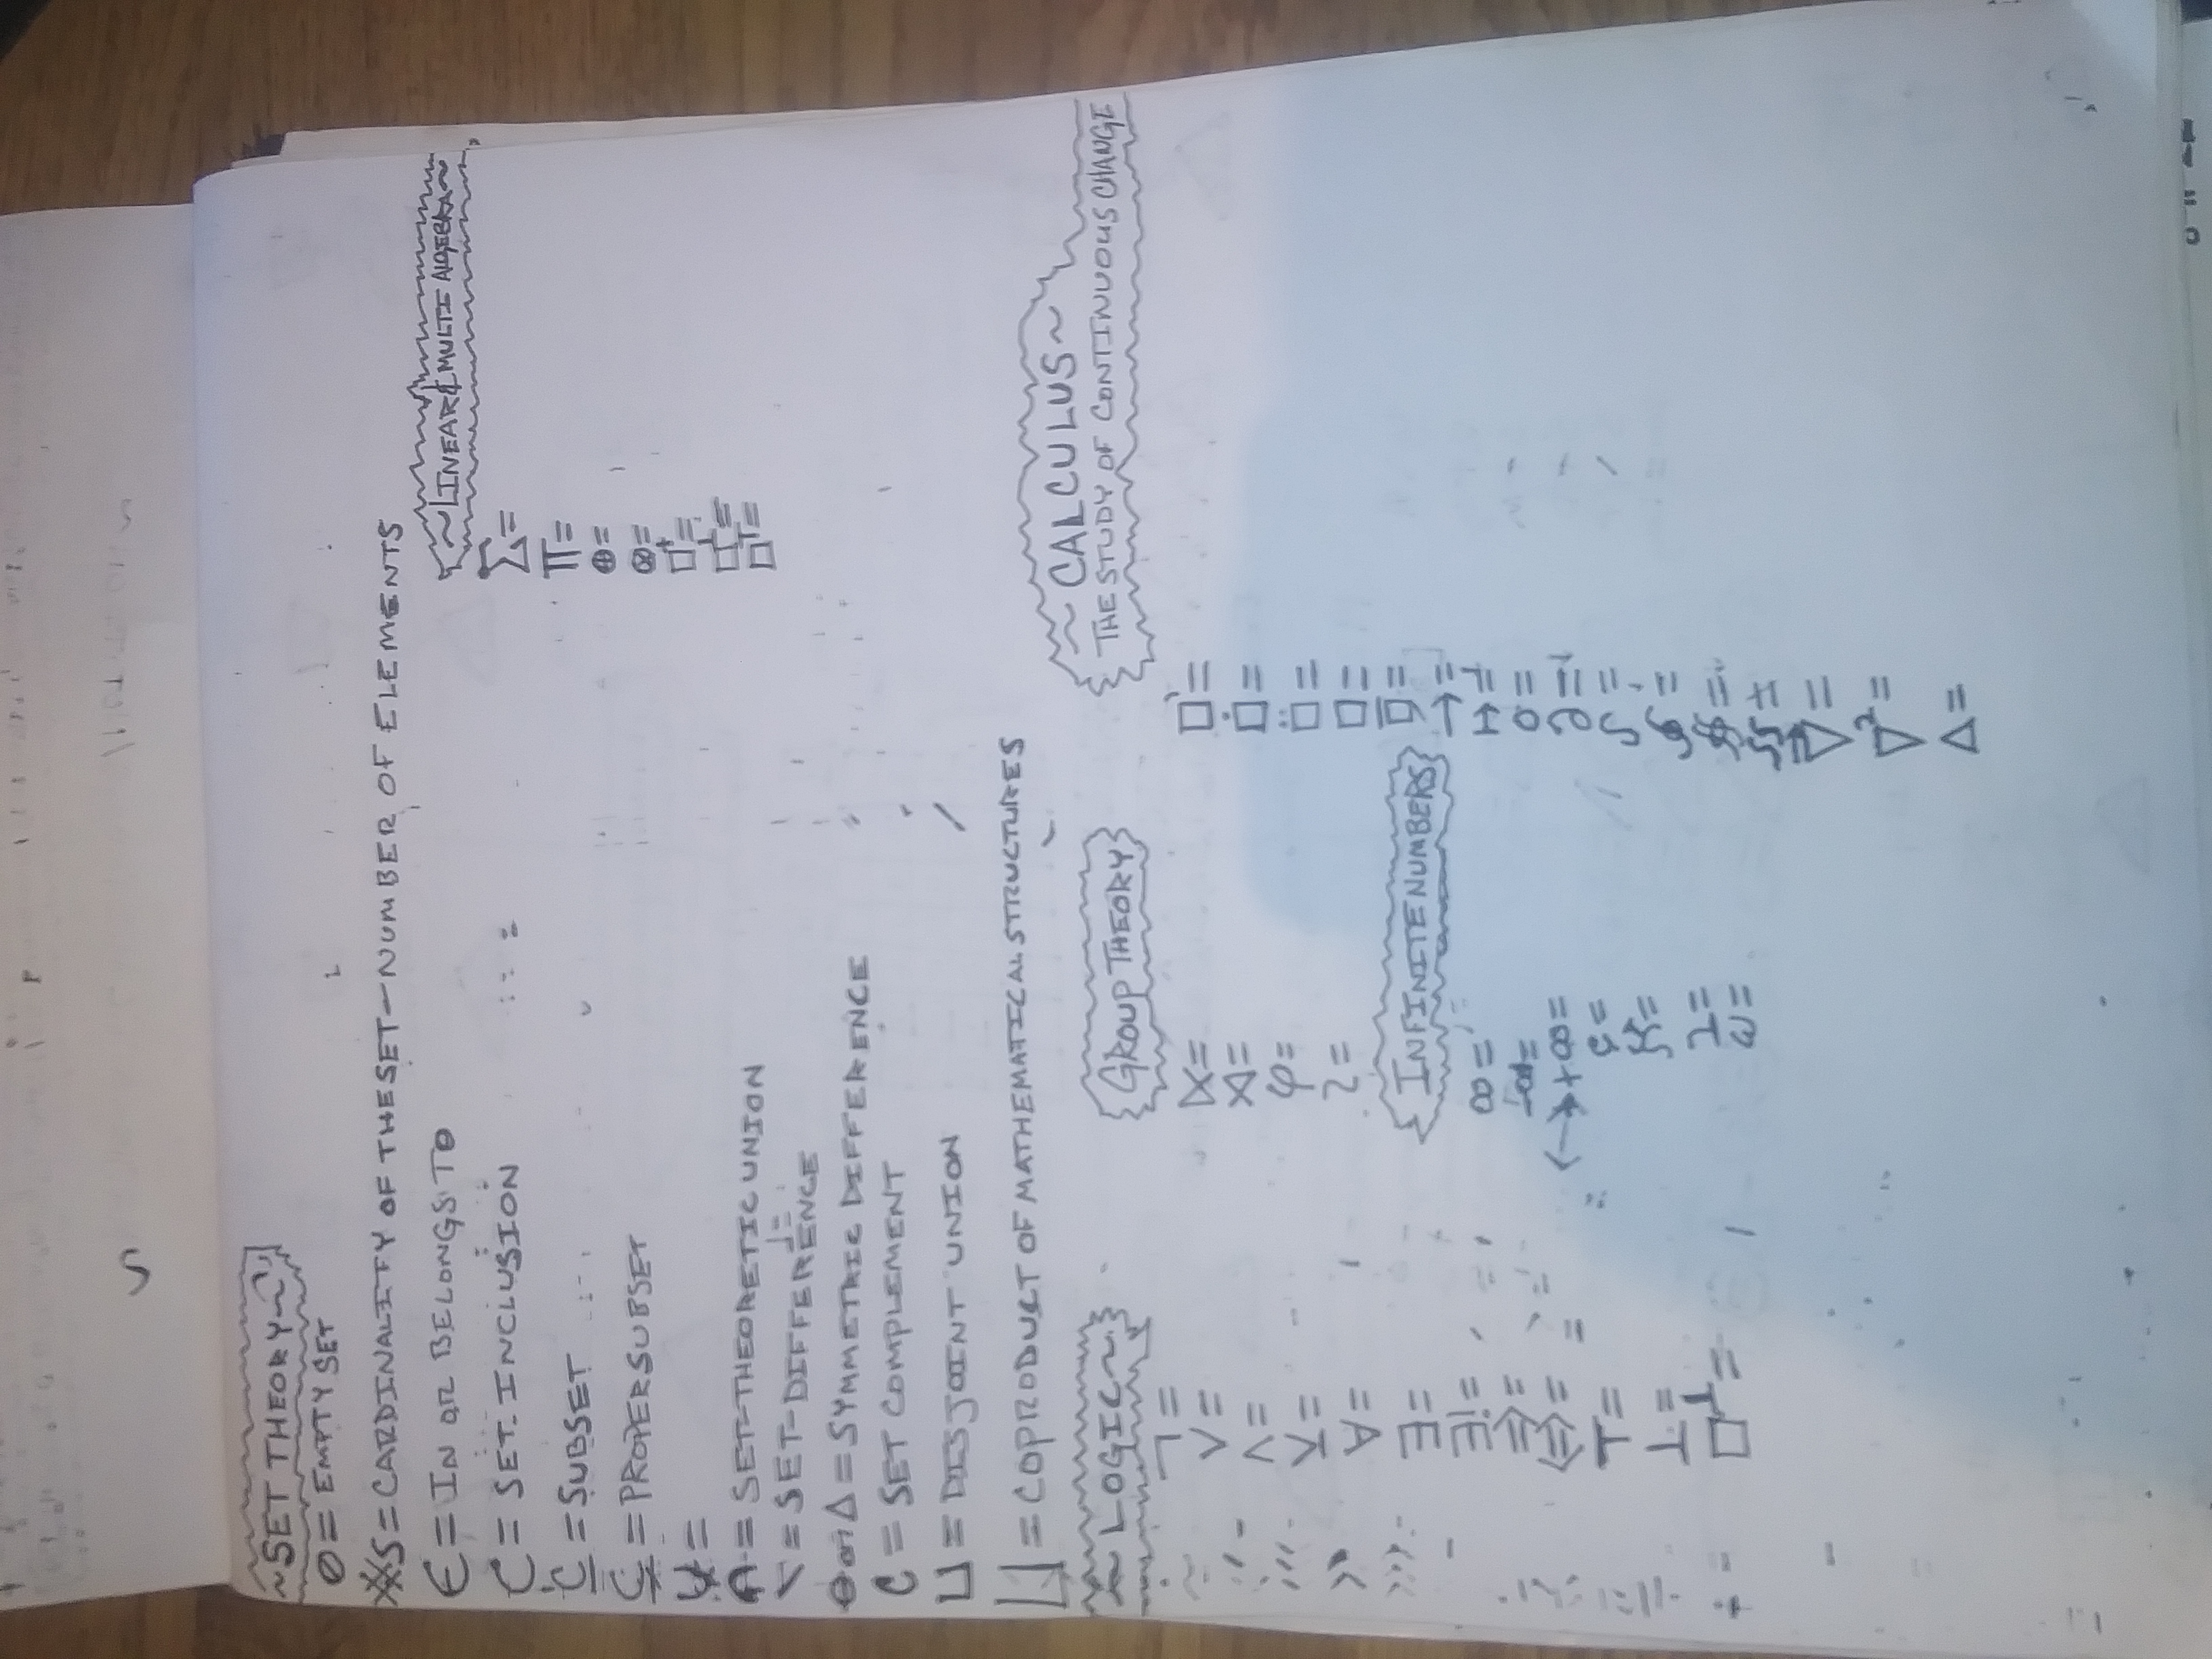 ~SET THEORY~
∅ = EMPTY SET
#S = CARDINALITY OF THE SET - NUMBER OF ELEMENTS
∈ = IN OR BELONGS TO
⊂ = SET INCLUSION
⊆ = SUBSET
⊊ = PROPER SUBSET
=
∩ = SET-THEORETIC UNION
\ = SET-DIFFERENCE
⊖ or Δ = SYMMETRIC DIFFERENCE
C = SET COMPLEMENT
⊔ = DISJOINT UNION
∐ = COPRODUCT OF MATHEMATICAL STRUCTURES
~LINEAR & MULTI ALGEBRA~
Σ=
Π=
⊕=
⊗=
□⁺=
□^⊥=
□ᵀ=
~ LOGIC ~
¬ =
∨ =
∧ =
⊻ =
∀ =
∃ =
∃! =
⇒ =
⇔ =
⊤ =
⊥ =
□^⊥ =
GROUP THEORY
⋉=
⋊=
φ=
≀=
INFINITE NUMBERS
∞ =
=
+∞ =
=
=
=
ω =
~ CALCULUS ~
THE STUDY OF CONTINUOUS CHANGE
□' =
□̇ =
□̈ =
□ =
□ =
→ =
↦ =
○ =
∂ =
∫ =
∮ =
=
=
▽ =
▽² =
Δ =